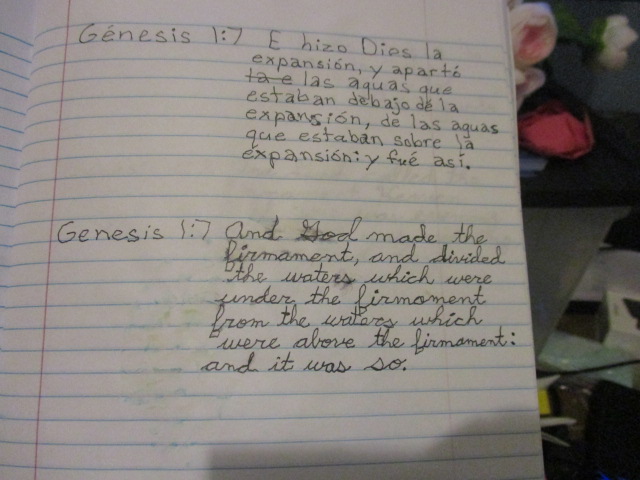 Génesis 1:7 E hizo Dios la
expansión, y apartó
la e las aguas que
estaban debajo de la
expansión, de las aguas
que estaban sobre la
expansión: y fué así.
Genesis 1:7 And God made the
firmament, and divided
the waters which were
under the firmament
from the waters which
were above the firmament:
and it was so.